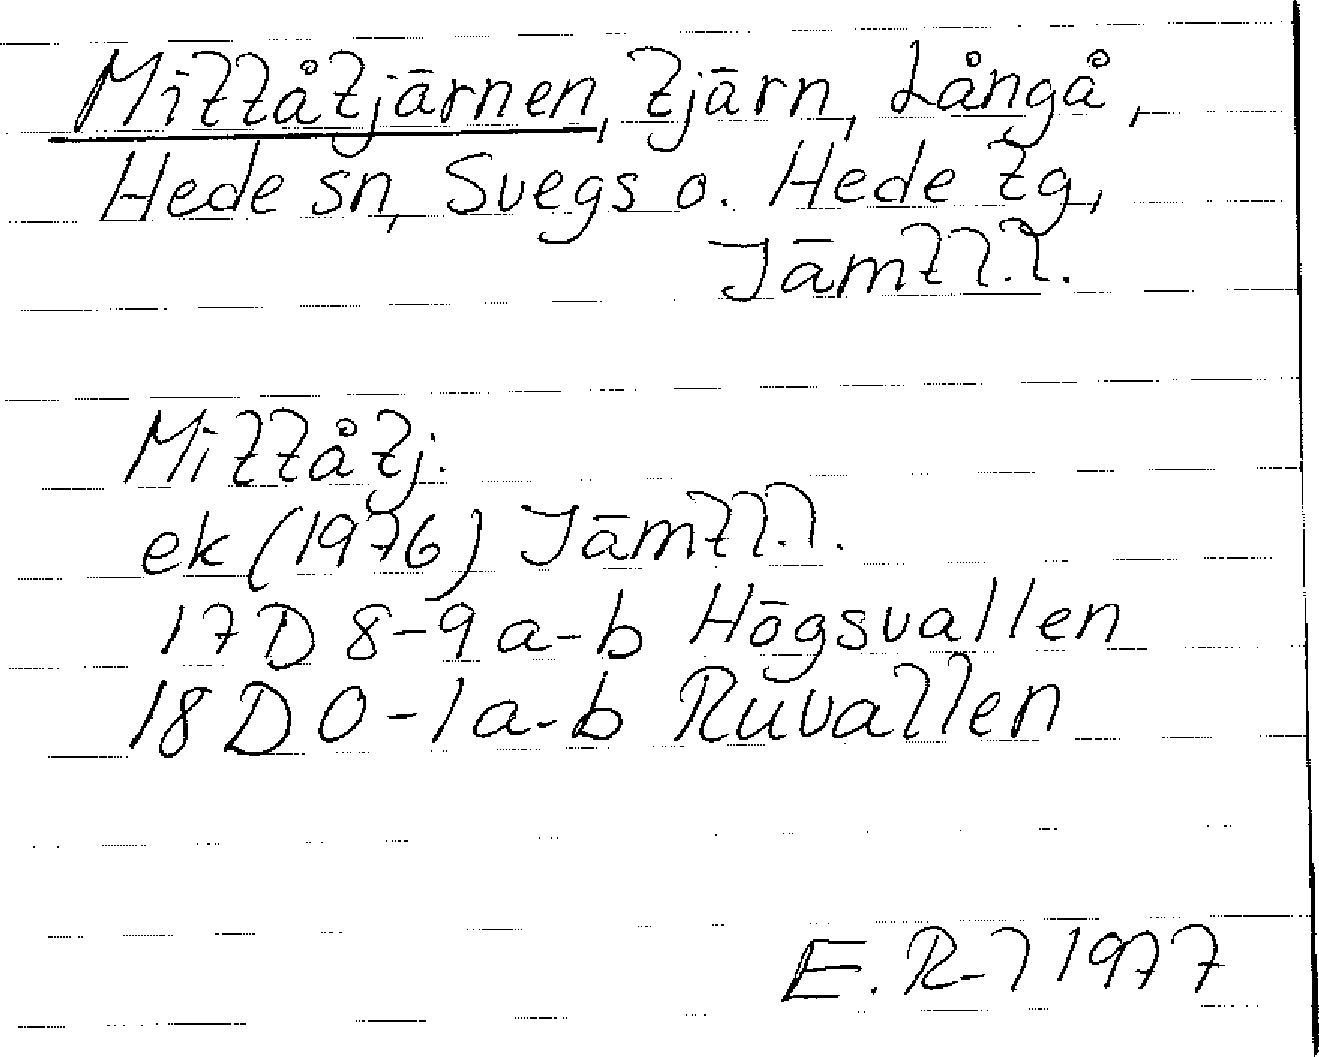 Mittåtjärnen, tjärn, Långå,
Hede sn, Svegs o. Hede tg,
Jämtl.l.
Mittåtj.
ek (1976) Jämtl.l.
17D 8-9 a-b Högsvallen
18D 0-1 a-b Ruvallen
E.R-l 1977